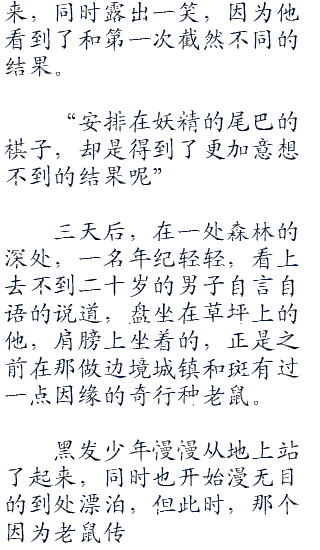 来，同时露出一笑，因为他
看到了和第一次截然不同的
结果。
“安排在妖精的尾巴的
棋子，却是得到了更加意想
不到的结果呢”
三天后，在一处森林的
深处，一名年纪轻轻，看上
去不到二十岁的男子自言自
语的说道，盘坐在草坪上的
他，肩膀上坐着的，正是之
前在那做边境城镇和斑有过
一点因缘的奇行种老鼠。
黑发少年慢慢从地上站
了起来，同时也开始漫无目
的到处漂泊，但此时，那个
因为老鼠传